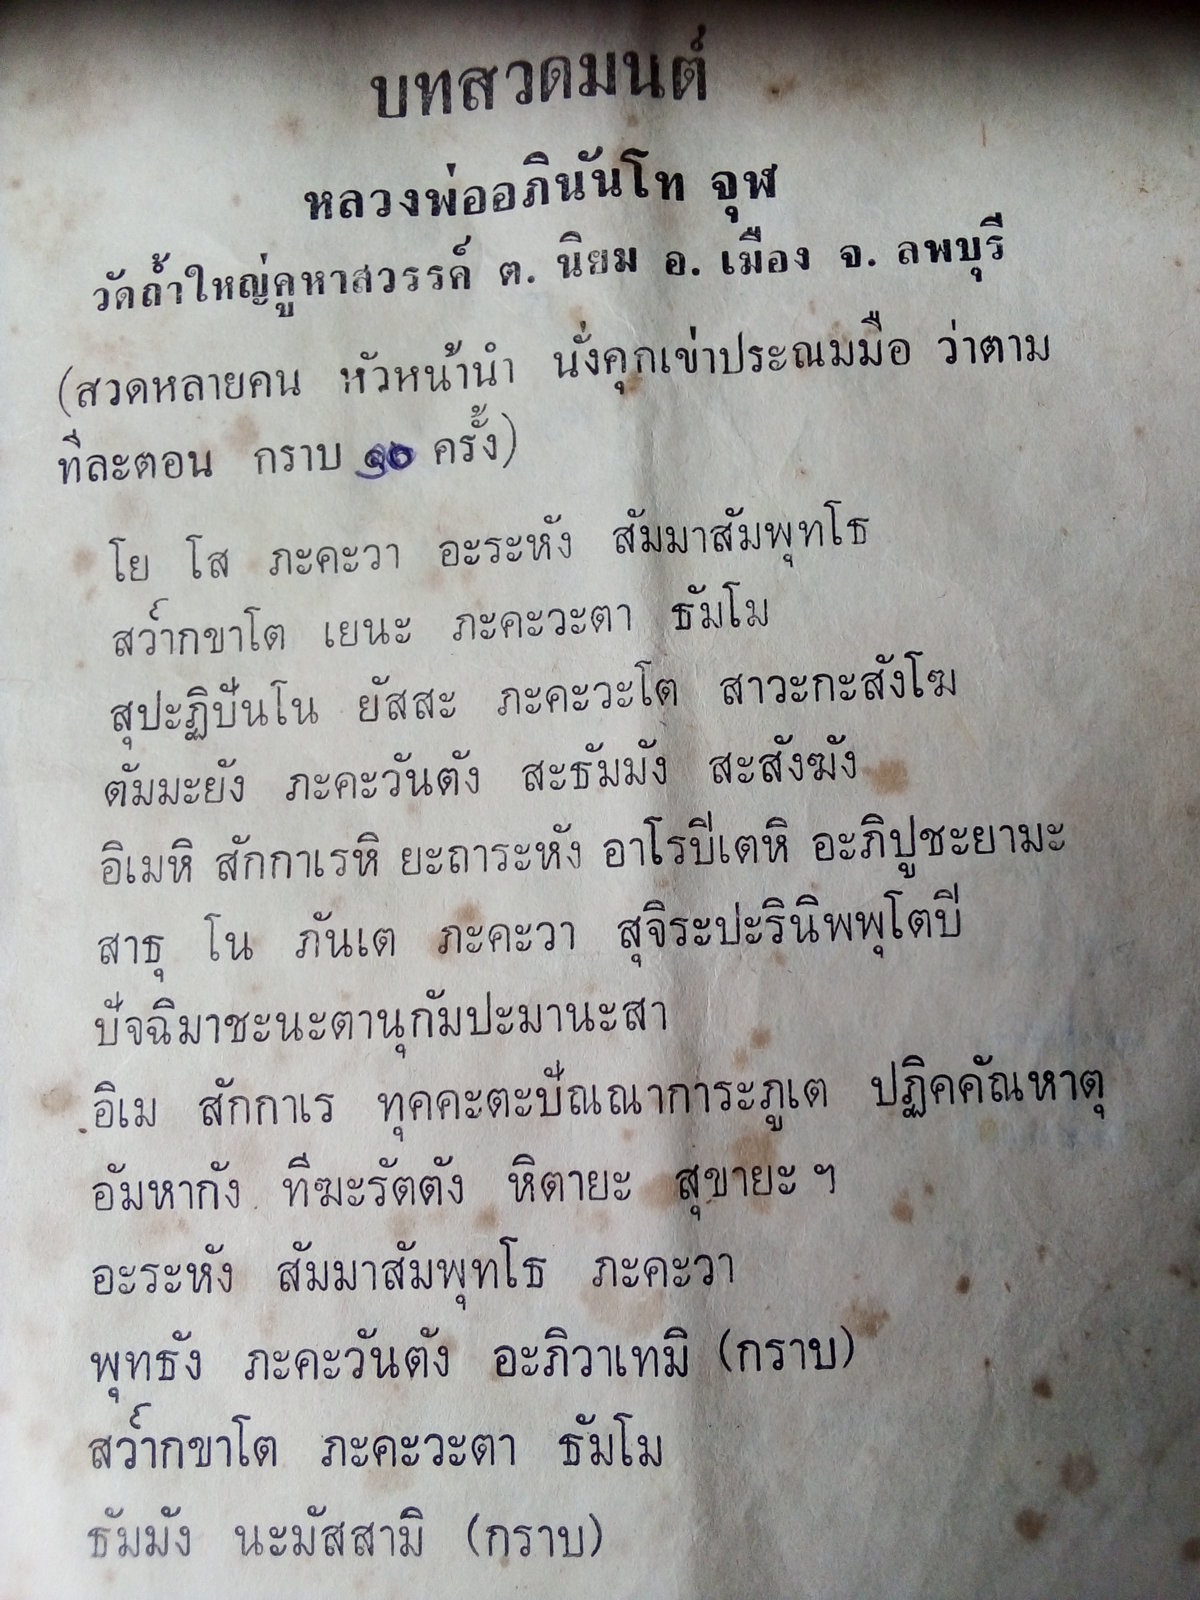 บทสวดมนต์
หลวงพ่ออภินันโท จุฬ
วัดถ้ำใหญ่คูหาสวรรค์ ต. นิยม อ. เมือง จ. ลพบุรี
(สวดหลายคน หัวหน้านำ นั่งคุกเข่าประณมมือ ว่าตาม
ทีละตอน กราบ ๑๖ ครั้ง)
โย โส ภะคะวา อะระหัง สัมมาสัมพุทโธ
สว๎ากขาโต เยนะ ภะคะวะตา ธัมโม
สุปะฏิปันโน ยัสสะ ภะคะวะโต สาวะกะสังโฆ
ตัมมะยัง ภะคะวันตัง สะธัมมัง สะสังฆัง
อิเมหิ สักกาเรหิ ยะถาระหัง อาโรปิเตหิ อะภิปูชะยามะ
สาธุ โน ภันเต ภะคะวา สุจิระปะรินิพพุโตปี
ปัจฉิมาชะนะตานุกัมปะมานะสา
อิเม สักกาเร ทุคคะตะปัณณาการะภูเต ปฏิคคัณหาตุ
อัมหากัง ทีฆะรัตตัง หิตายะ สุขายะ ฯ
อะระหัง สัมมาสัมพุทโธ ภะคะวา
พุทธัง ภะคะวันตัง อะภิวาเทมิ (กราบ)
สว๎ากขาโต ภะคะวะตา ธัมโม
ธัมมัง นะมัสสามิ (กราบ)